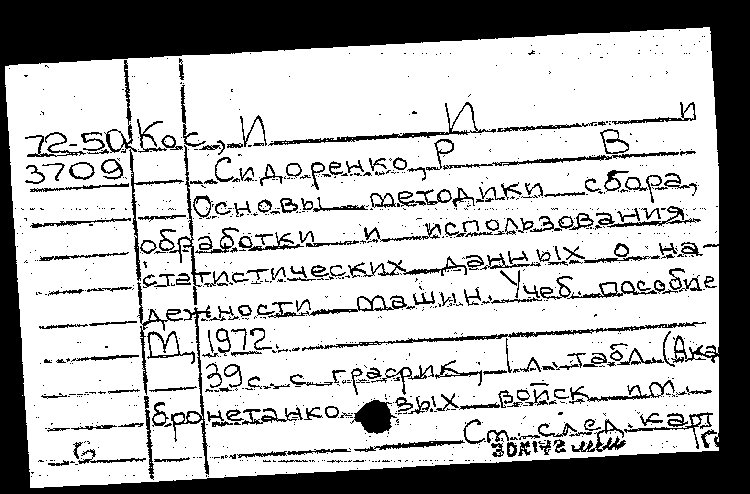 72-50 Кос, И И и
3709 Сидоренко, Р В
Основы методики сбора,
обработки и использования
статистических данных о на-
дежности машин. Учеб. пособие
М, 1972.
39с. с график; 1 л. табл. (Ака
бронетанко вых войск им.
См. след. карт
6